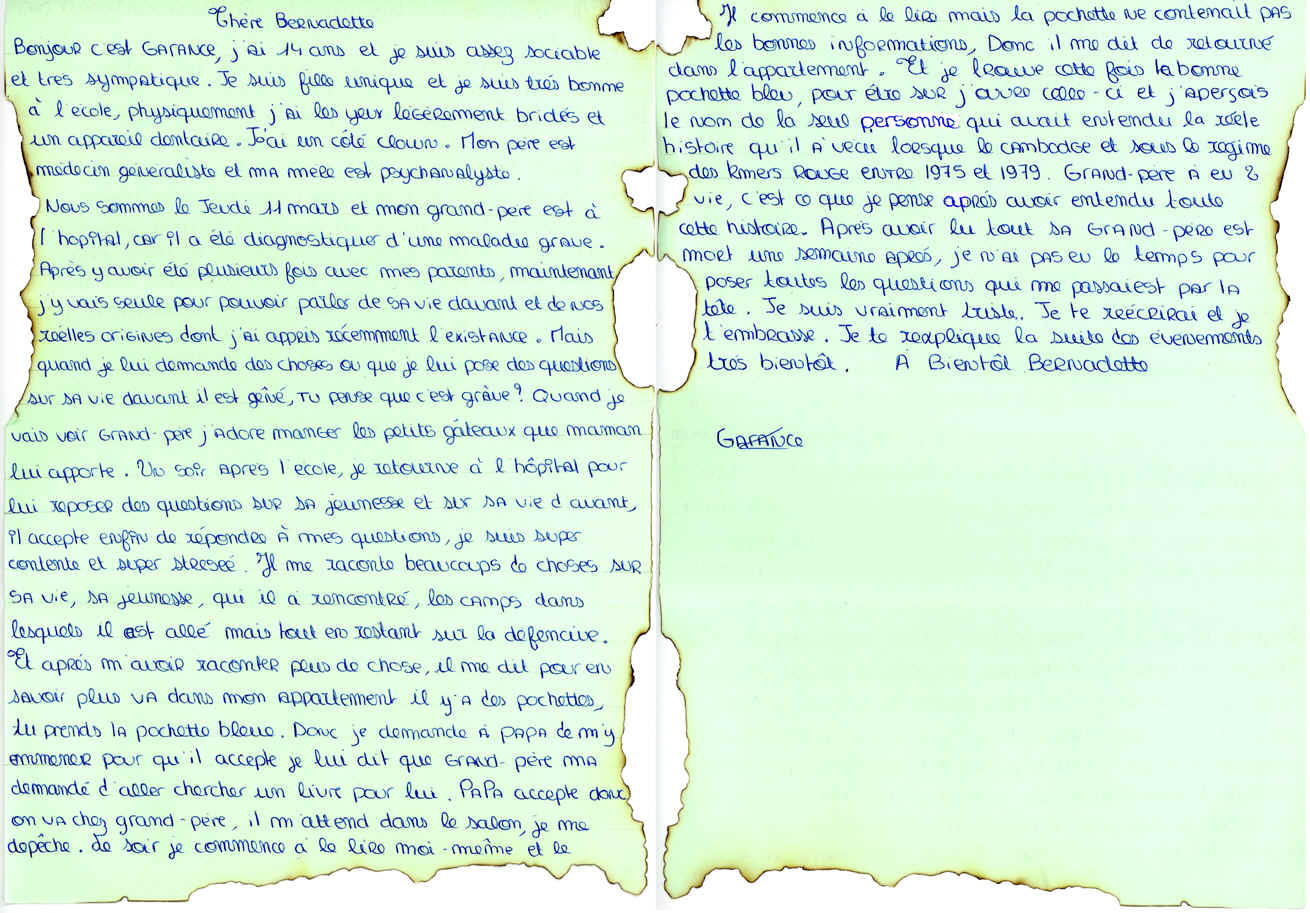 Chère Bernadette
Bonjour c'est Garance, j'ai 14 ans et je suis assez sociable
et tres sympatique. Je suis fille unique et je suis très bonne
à l'ecole, physiquement j'ai les yeux légèrement bridés et
un appareil dentaire. J'ai un côté clown. Mon père est
médecin generaliste et ma mere est psychanalyste.
Nous sommes le Jeudi 11 mars et mon grand-pere est à
l'hopital, car il a été diagnostiquer d'une maladie grave.
Après y avoir été plusieurs fois avec mes parents, maintenant
j'y vais seule pour pouvoir parler de sa vie davant et de nos
réelles origines dont j'ai appris récemment l'existance. Mais
quand je lui demande des choses ou que je lui pose des questions
sur sa vie davant il est gêné, tu pense que c'est grâve? Quand je
vais voir grand-père j'adore manger les petits gâteaux que maman
lui apporte. Un soir après l'ecole, je retourne à l hôpital pour
lui reposer des questions sur sa jeunesse et sur sa vie d avant,
il accepte enfin de répondre à mes questions, je suis super
contente et super stresseé. Il me raconte beaucoups de choses sur
sa vie, sa jeunesse, qui il a rencontré, les camps dans
lesquels il est allé mais tout en restant sur la defencive.
Et après m'avoir raconter plus de chose, il me dit pour en
savoir plus va dans mon appartement il y'a des pochettes,
tu prends la pochette bleue. Donc je demande à papa de m'y
emmener pour qu'il accepte je lui dit que grand-père ma
demandé d'aller chercher un livre pour lui. Papa accepte donc
on va chez grand-père, il m'attend dans le salon, je me
depêche. Le soir je commence à le lire moi-même et le
Il commence à le lire mais la pochette ne contenait pas
les bonnes informations, Donc il me dit de retourné
dans l'appartement. Et je trouve cette fois la bonne
pochette bleu, pour être sur j'ouvre celle-ci et j'aperçois
le nom de la seul personne qui avait entendu la réele
histoire qu'il a vecu lorsque le Cambodge et sous le regime
des kmers rouge entre 1975 et 1979. Grand-père a eu 2
vie, c'est ce que je pense après avoir entendu toute
cette histoire. Après avoir lu tout sa grand-père est
mort une semaine après, je n'ai pas eu le temps pour
poser toutes les questions qui me passaiest par la
tete. Je suis vraiment triste. Je te reécrirai et je
t'embrasse. Je te reexplique la suite des évenements
très bientôt. À Bientôt Bernadette
Garance